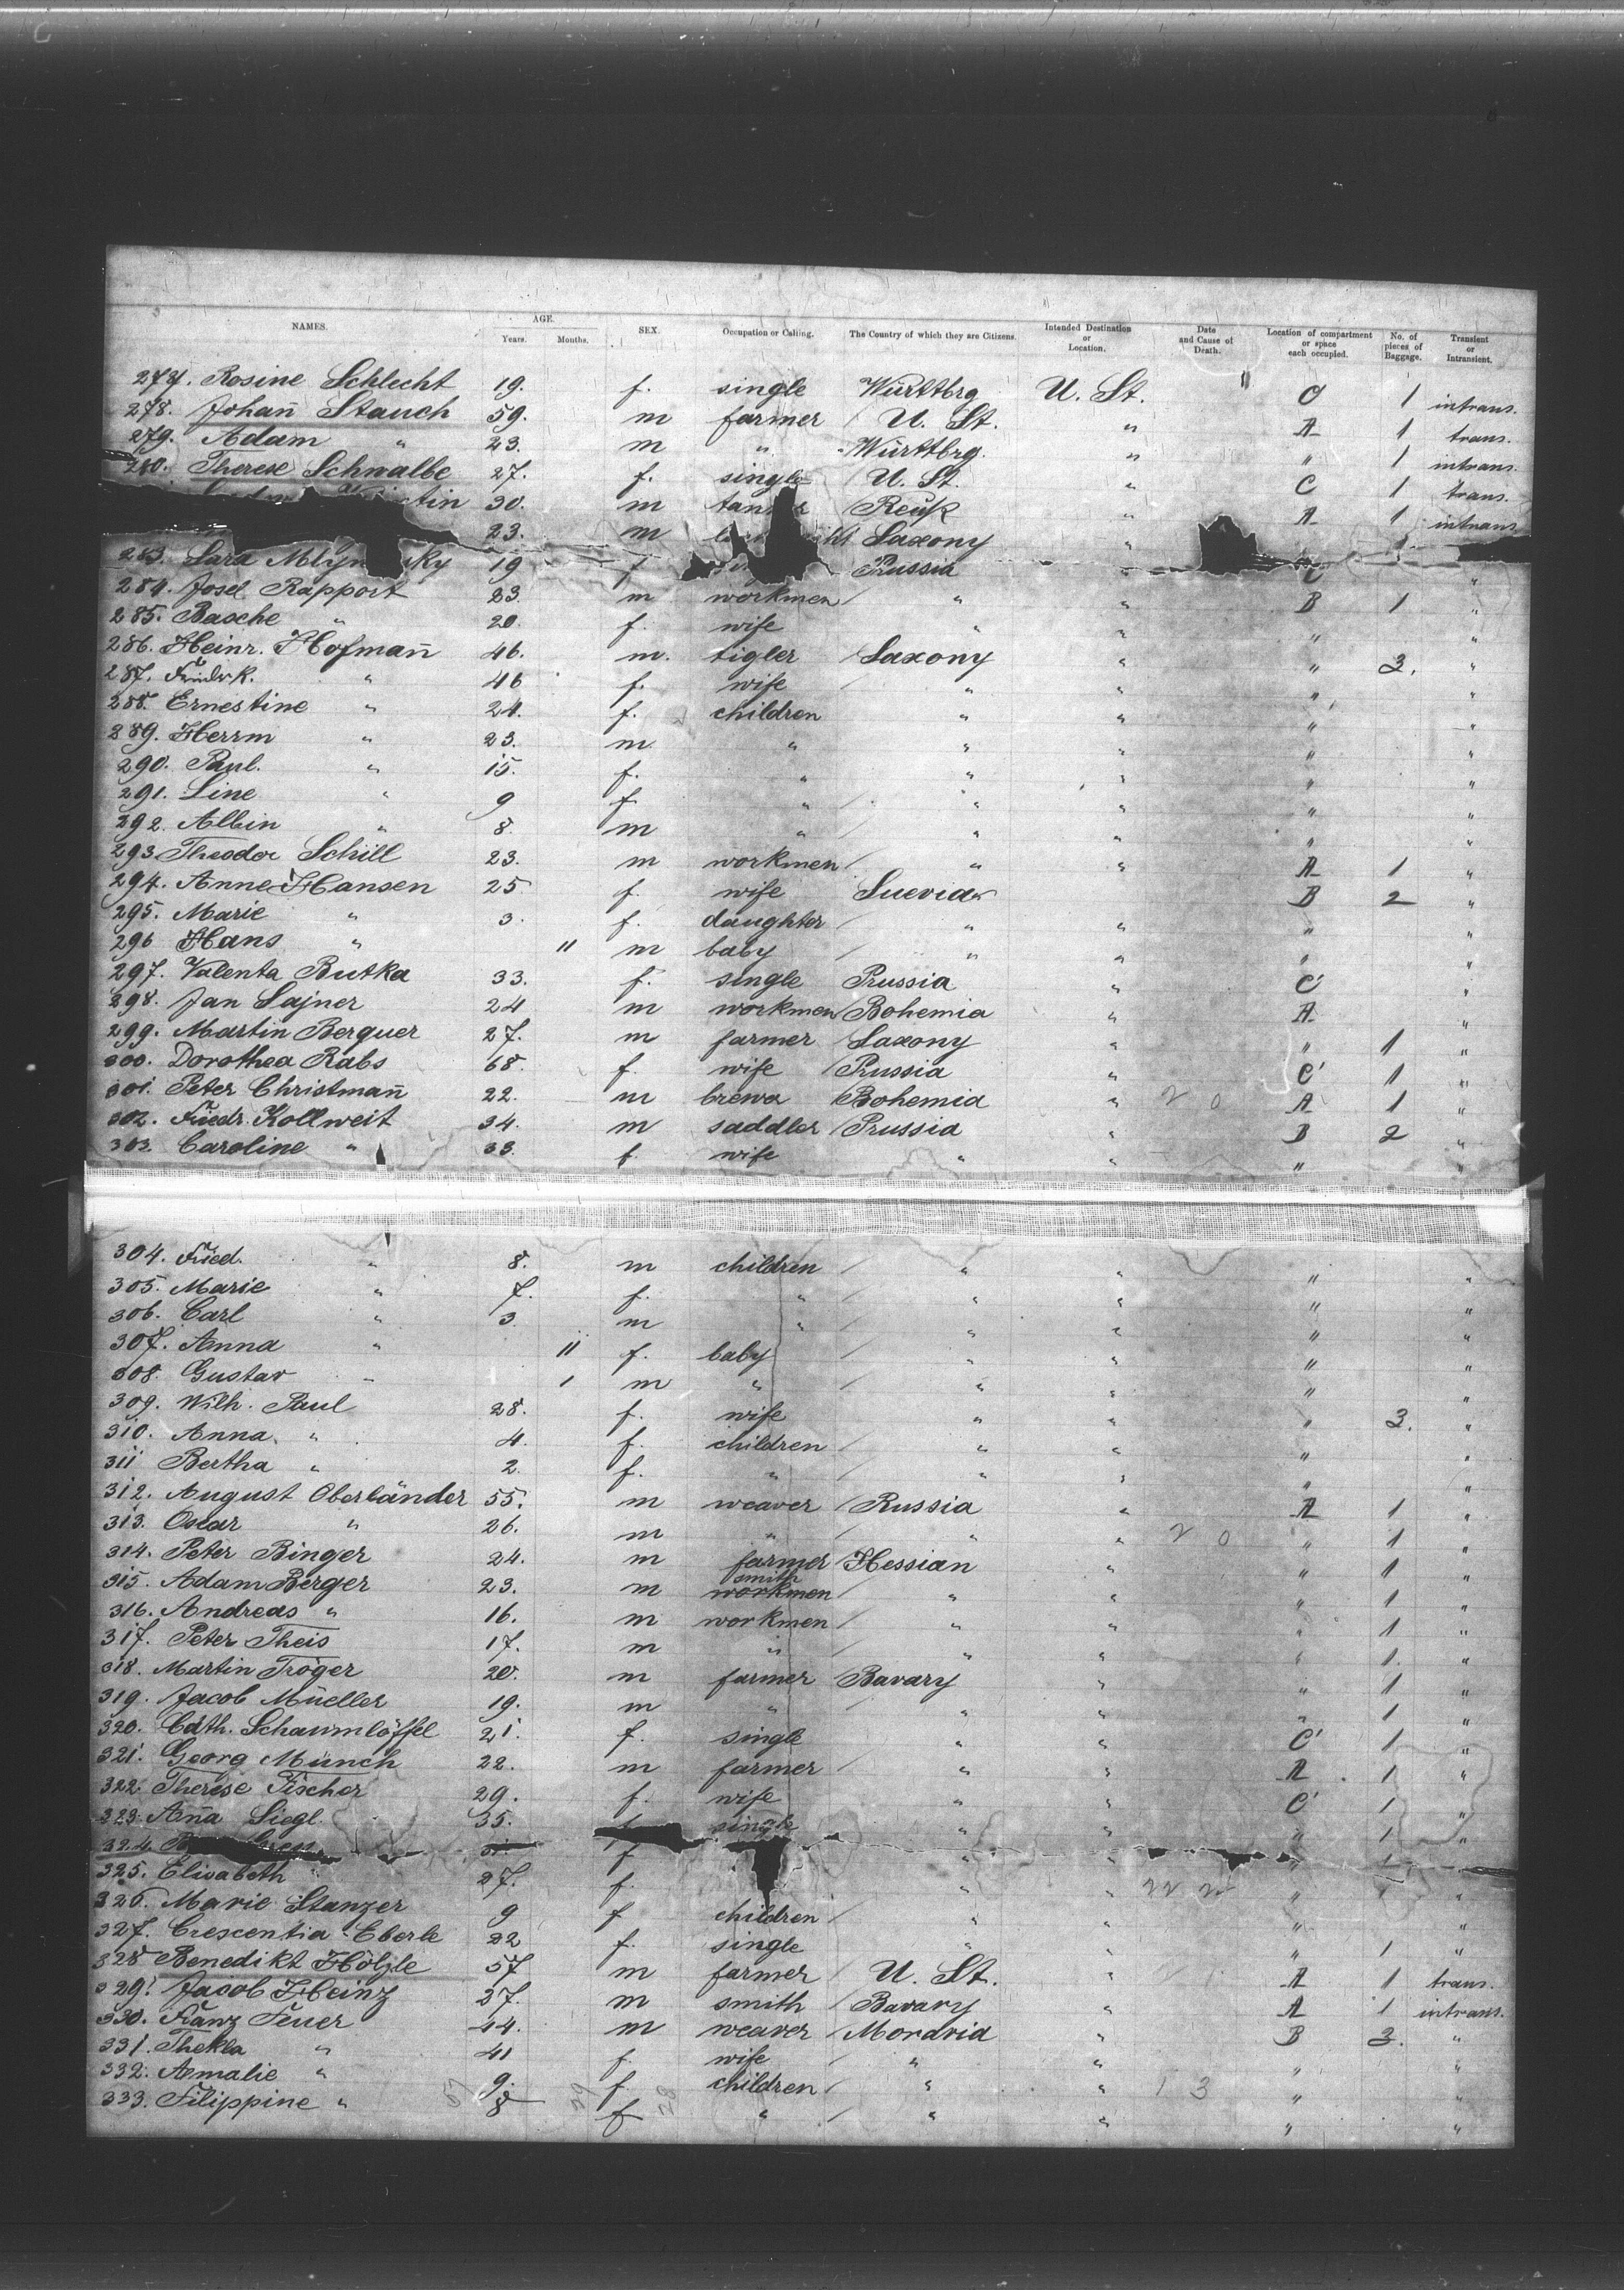 NAMES. AGE. Years. Months. SEX. Occupation or Calling. The Country of which they are Citizens. Intended Destination or Location. Date and Cause of Death. Location of compartment or space each occupied. No. of pieces of Baggage. Transient or Intransient.
277. Rosine Schlecht 19. f. single Württbrg U. St. " C 1 intrans.
278. Johañ Stauch 59. m farmer U. St. " A 1 trans.
279. Adam " 23. m " Württbrg. " " 1 intrans.
280. Therese Schwalbe 27. f. single U. St. " C 1 trans.
30. m Reuß " A 1 intrans
23. m Saxony "
283. Sara 19 f Prussia " C "
284. Josel Rapport 23. m workmen " " B 1 "
285. Basche " 20. f. wife " " " "
286. Heinr. Hofmañ 46. m. tigler Saxony " " 3. "
287. Friedrk. " 46 f. wife " " " "
288. Ernestine " 24. f. children " " " "
289. Herrm " 23. m " " " " "
290. Paul. " 15. f. " " " " "
291. Line " 9 f. " " " " "
292. Albin " 8. m " " " " "
293. Theodor Schill 23. m workmen " " A 1 "
294. Anne Hansen 25 f. wife Suevia B 2 "
295. Marie " 3. f. daughter " " " "
296 Hans " 11 m baby " " " "
297. Valenta Butka 33. f. single Prussia " C "
298. Jan Lajner 24 m workmen Bohemia " A "
299. Martin Berguer 27. m farmer Saxony " " 1 "
300. Dorothea Rabs 68. f. wife Prussia " C 1 "
301. Peter Christmañ 22. m brewer Bohemia " 2 0 A 1 "
302. Friedr. Kollweit 34. m saddler Prussia " B 2 "
303. Caroline " 33. f. wife " " " "
304. Fried. " 8. m children " " " "
305. Marie " 7. f. " " " " "
306. Carl " 3 m " " " " "
307. Anna " 11 f. baby " " " "
308. Gustav " 1 m " " " " "
309. Wilh. Paul 28. f. wife " " " 3. "
310. Anna " 4. f. children " " " "
311 Bertha " 2. f. " " " " "
312. August Oberländer 55. m weaver Russia " A 1 "
313. Oscar " 26. m " " " 2 0 " 1 "
314. Peter Binger 24. m farmer Hessian " " 1 "
315. Adam Berger 23. m smith workmen " " " 1 "
316. Andreas " 16. m workmen " " " 1 "
317. Peter Theis 17. m " " " " 1. "
318. Martin Tröger 20. m farmer Bavary " " 1 "
319. Jacob Müeller 19. m " " " " 1 "
320. Cath. Schaumlöffel 21. f. single " " C 1 "
321. Georg Münch 22. m farmer " " A 1 "
322. Therese Fischer 29. f. wife " " C 1 "
323. Aña Siegl 35. single " " " 1 "
324. f " " " 1 "
325. Elisabeth 27. f. " " 22 2 " 1 "
326. Marie Stanzer 9 f children " " " "
327. Crescentia Eberle 22 f. single " " " 1 "
328 Benedikt Hölzle 57 m farmer U. St. " A 1 trans.
329. Jacob Heinz 27. m smith Bavary " A 1 intrans.
330. Franz Feuer 44. m weaver Moravia " B 3. "
331. Thekla " 41 f. wife " " " "
332. Aemalie " 9. f. children " " 1 3 " "
333. Filippine " 8 f " " " " "